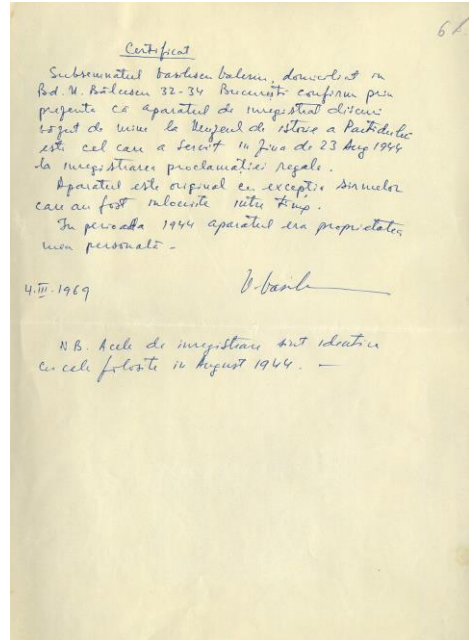 61
Certificat
Subsemnatul Vasilescu Valeriu, domiciliat in
Bd. N. Bălcescu 32-34 București confirm prin
prezenta că aparatul de inregistrat discuri
văzut de mine la Muzeul de istorie a Partidului
este cel care a servit in ziua de 23 Aug 1944
la inregistrarea proclamației regale.
Aparatul este original cu excepția sirmelor
care au fost inlocuite intre timp.
In perioada 1944 aparatul era proprietatea
mea personală -
4.III.1969
V. Vasile
NB. Acele de inregistrare sunt identice
cu cele folosite in August 1944. —